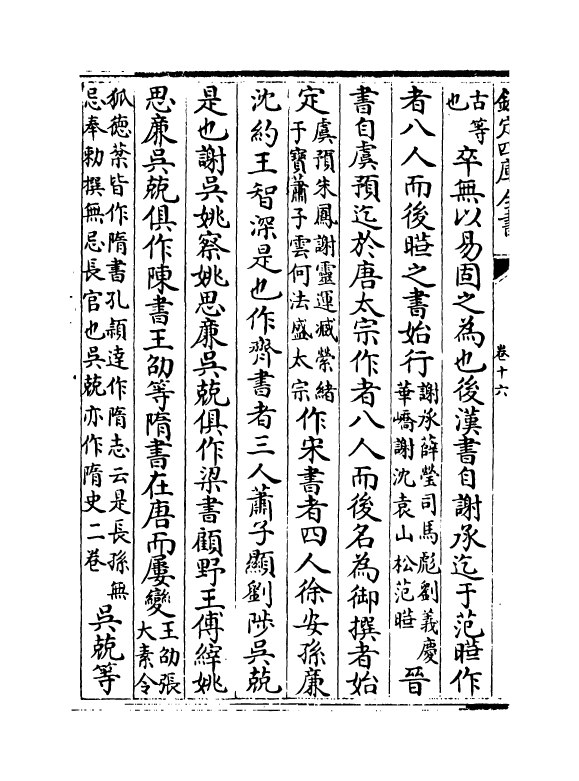 欽定四庫全書
卷十六
古等
也
卒無以易固之為也後漢書自謝承迄于范曄作
者八人而後曄之書始行
謝承薛瑩司馬彪劉義慶
華嶠謝沈袁山松范曄
晉
書自虞預迄於唐太宗作者八人而後名為御撰者始
定
虞預朱鳳謝靈運臧榮緒
于寶蕭子雲何法盛太宗
作宋書者四人徐安孫廉
沈約王智深是也作齊書者三人蕭子顯劉陟吳兢
是也謝吳姚察姚思廉吳兢俱作梁書顧野王傅縡姚
思廉吳兢俱作陳書王劭等隋書在唐而屢變
王劭張
大素令
狐德棻皆作隋書孔穎達作隋志云是長孫無
忌奉勅撰無忌長官也吳兢亦作隋史二卷
吳兢等